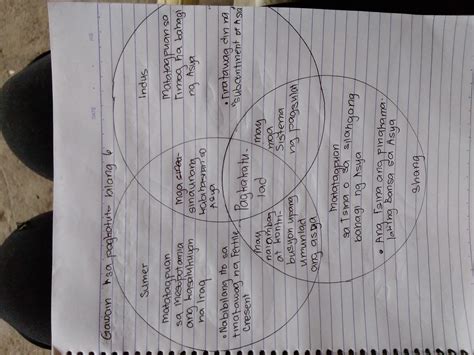 Gawain sa pagkatuto bilang 6
Sumer
matatagpuan
sa mesopotamia
ang kasalukuyan
na Iraq
• Nabibilang ito sa
tinatawag na Fertile
Cresent
Mga
sinaunang
kabihasnan sa
Asya
Indus
Matatagpuan sa
Timog na bahagi
ng Asya
• Tinatawag din na
subcontinent of Asia
Pagkakatu-
lad
may
naiambag
at kontri
busyon upang
umunlad
ang asya
may
mga
Sistema
ng pagsulat
matatagpuan
sa Tsina o sa silangang
bahagi ng Asya
• Ang Tsina ang pinakama-
laking bansa sa Asya
shang